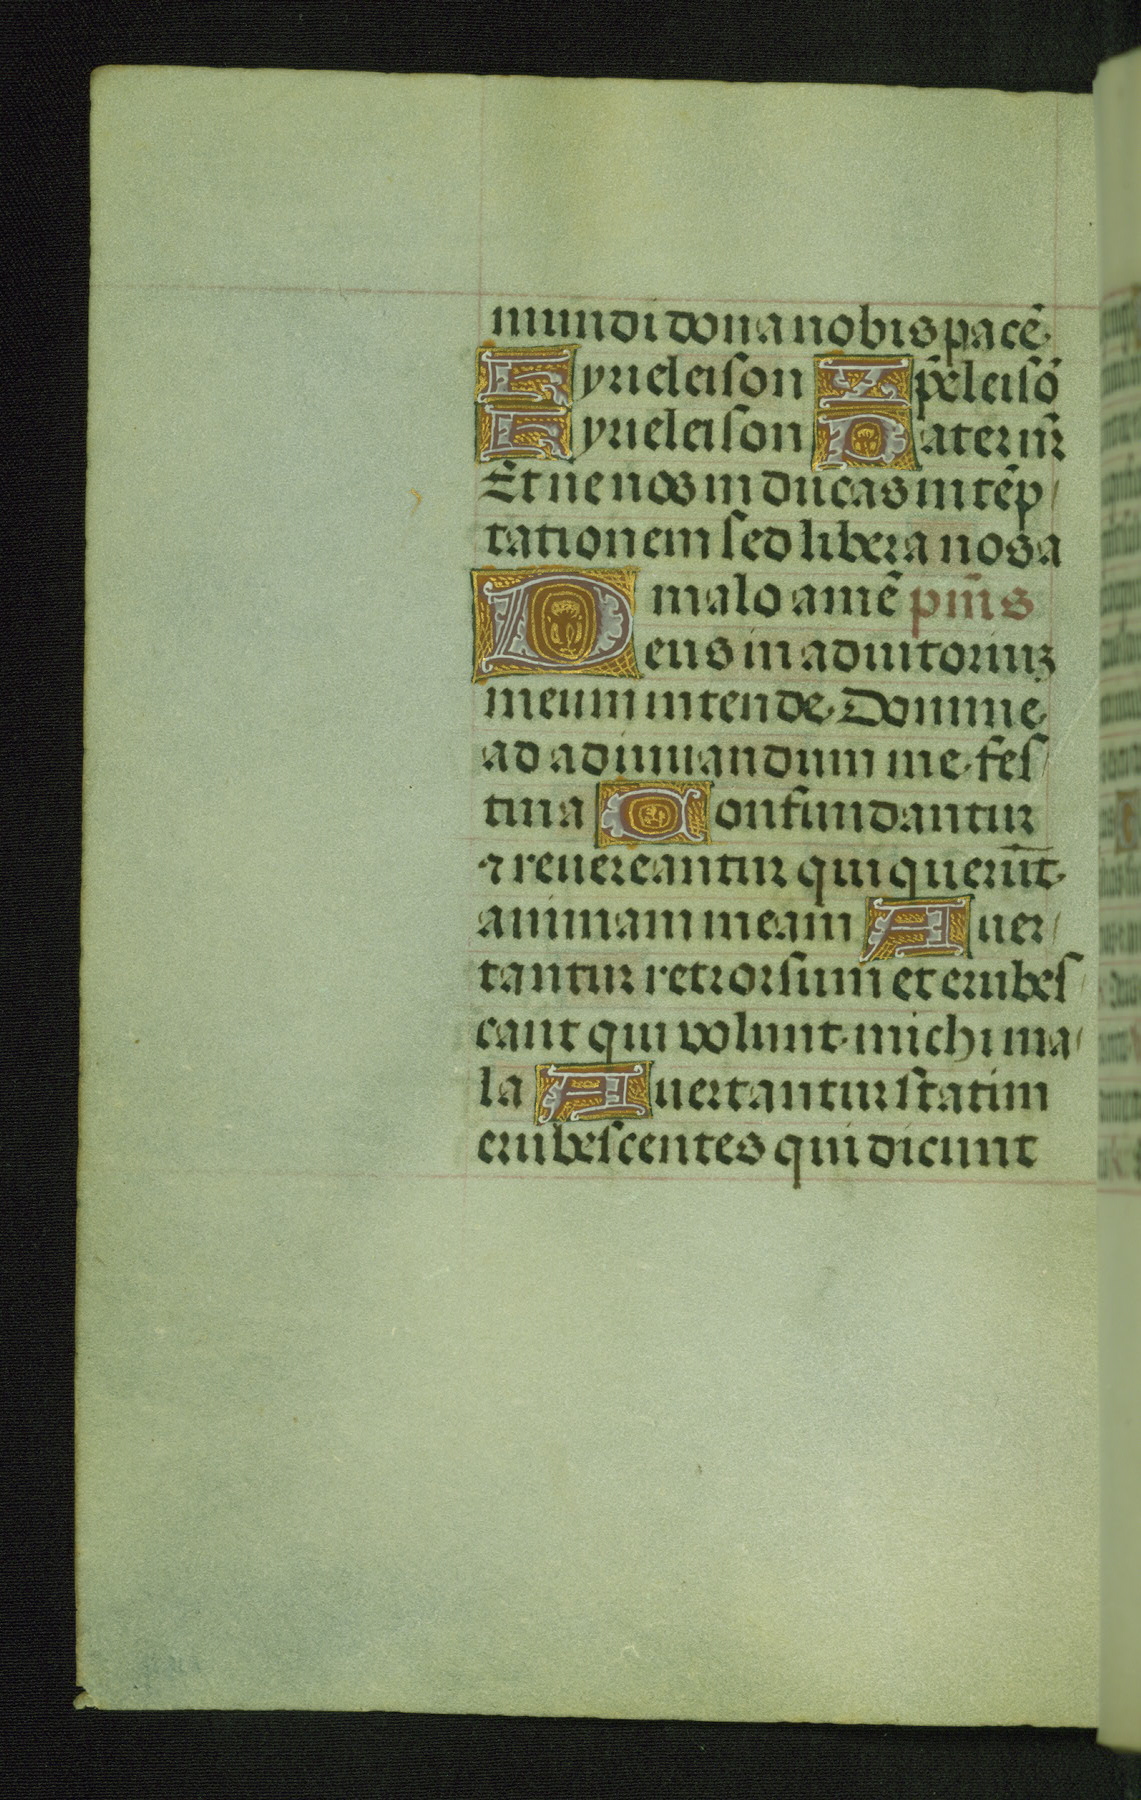 mundi dona nobis pacē
Kyrieleison Xp̄eleisō
Kyrieleison Pater nr̄
Et ne nos inducas in tēp
tationem sed libera nos a
malo amē pm̄s
Deus in adiutoriuꝫ
meum intende. Domine
ad adiuuandum me fes
tina Confundantur
⁊ reuereantur qui querūt
animam meam Auer
tantur retrorsum et erubes
cant qui volunt michi ma
la Auertantur statim
erubescentes qui dicunt